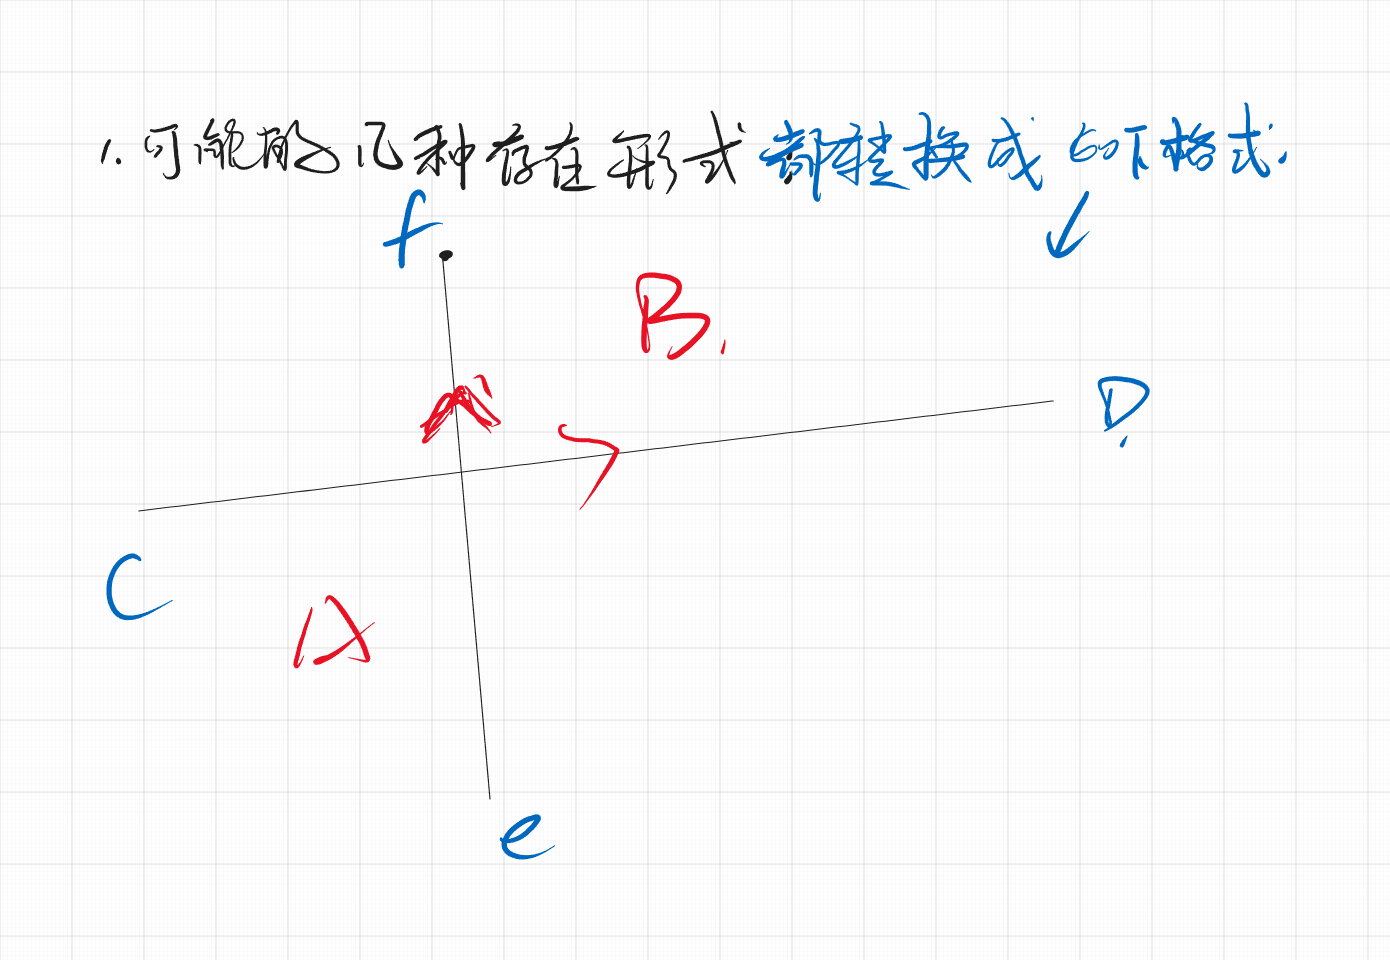 1.可能的几种存在形式都转换成如下格式.
f.
B.
D.
C
A
e